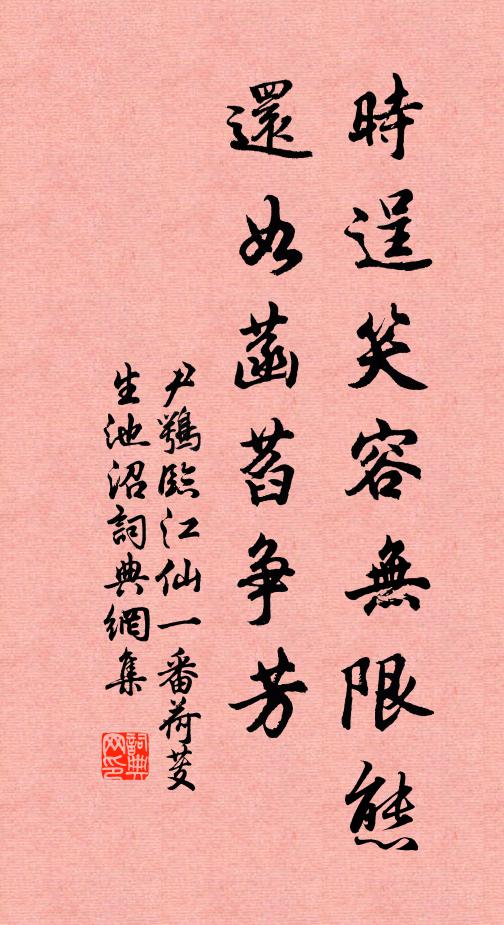 時逞笑容無限態
還如菡萏争芳
尹鶚臨江仙一番荷芰
生池沼詞典網集
詞典
网印